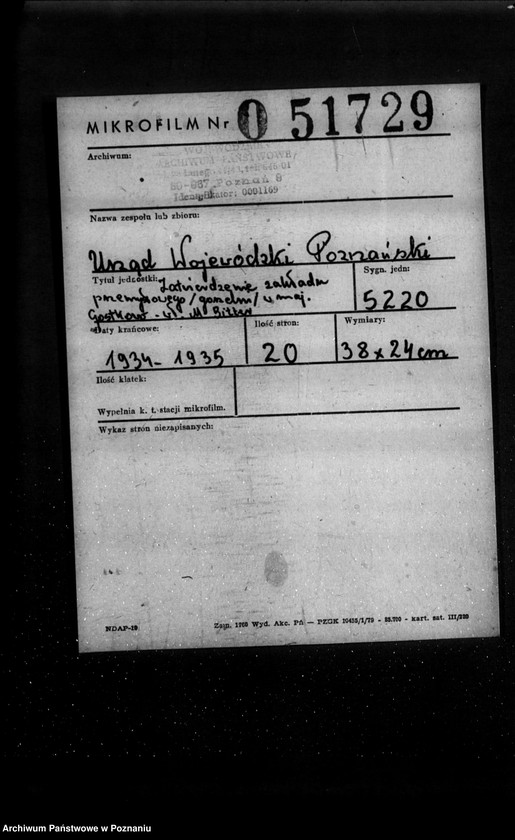 MIKROFILM Nr 0 51729
Archiwum:
WOJEWÓDZKIE
ARCHIWUM PAŃSTWOWE
60-967 Poznań 9
Identyfikator: 0001169
Nazwa zespołu lub zbioru:
Urząd Wojewódzki Poznański
Tytuł jedzostki: Zatwierdzenie zakładu
przemysłowego /gorzelni/ w maj.
Gostkowo
Sygn. jedn:
5220
Daty krańcowe:
1934 - 1935
Ilość stron:
20
Wymiary:
38 x 24 cm
Ilość klatek:
Wypełnia k. t. stacji mikrofilm.
Wykaz stron niezapisanych:
NDAP-19
Zam. 1700 Wyd. Akc. Pń — PZGK
kart. sat. III/
Archiwum Państwowe w Poznaniu